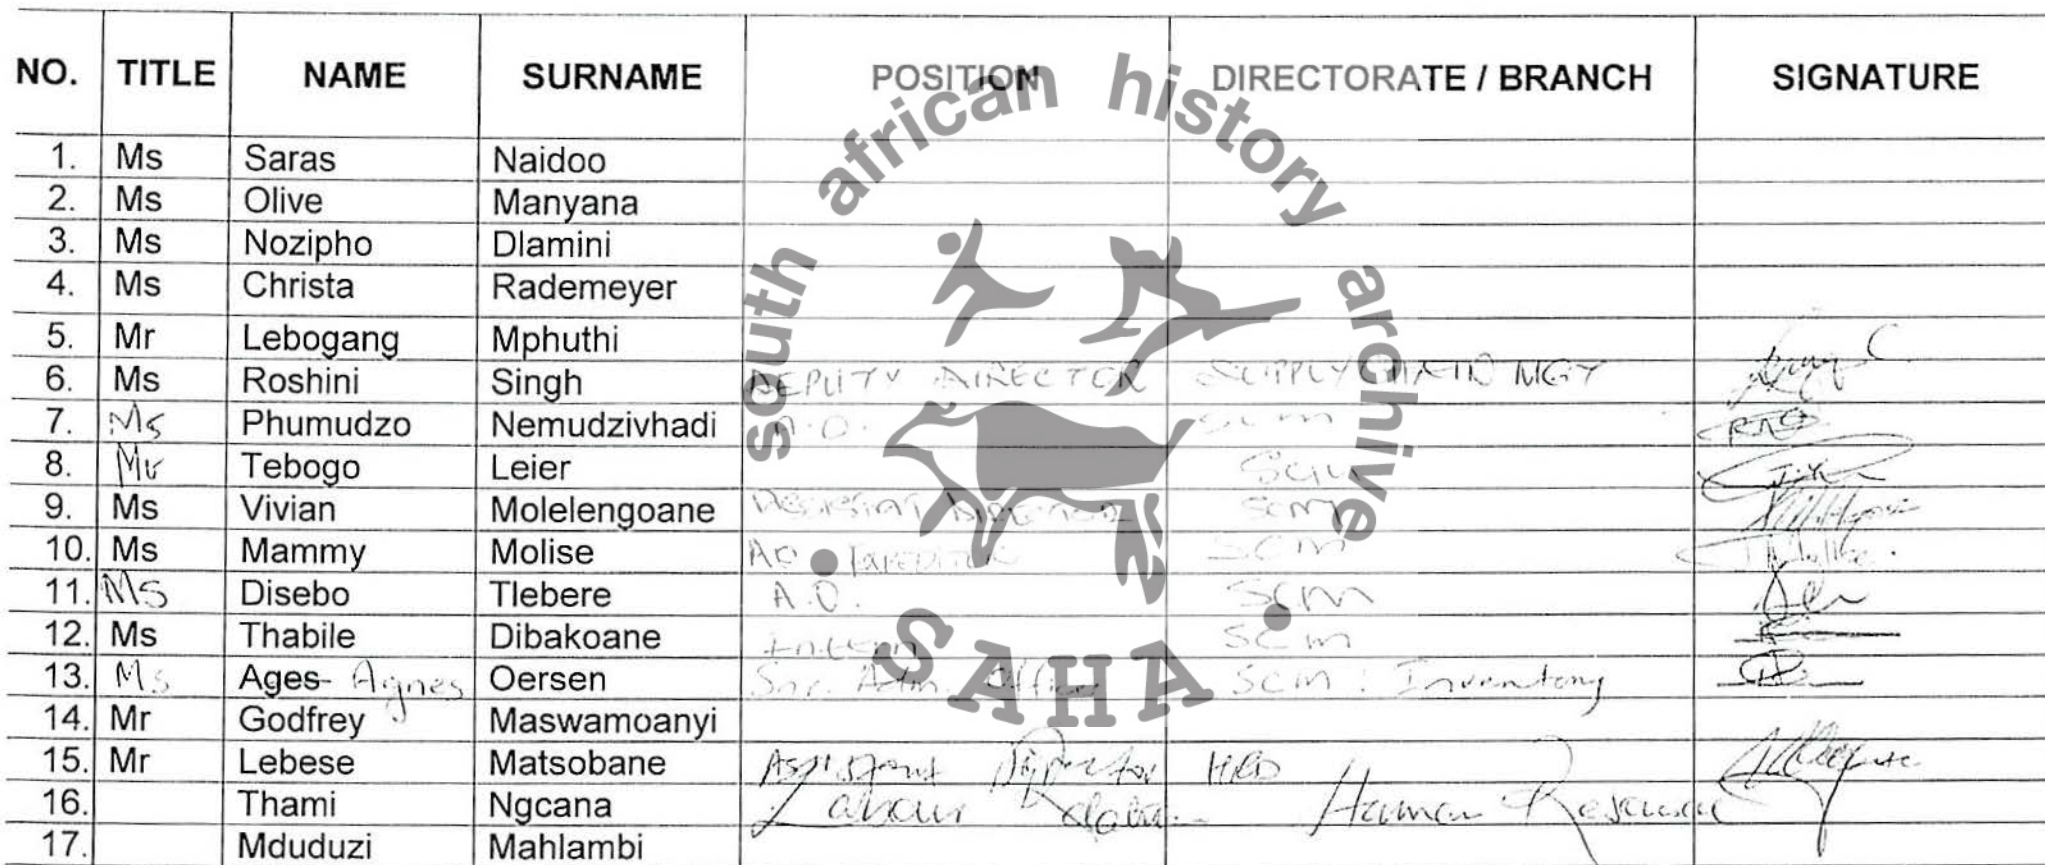 NO. TITLE NAME SURNAME POSITION DIRECTORATE / BRANCH SIGNATURE
1. Ms Saras Naidoo
2. Ms Olive Manyana
3. Ms Nozipho Dlamini
4. Ms Christa Rademeyer
5. Mr Lebogang Mphuthi
6. Ms Roshini Singh DEPUTY DIRECTOR SUPPLY CHAIN MGT
7. Ms Phumudzo Nemudzivhadi A.O. SCM
8. Mr Tebogo Leier SCM
9. Ms Vivian Molelengoane DIRECTOR SCM
10. Ms Mammy Molise SCM
11. Ms Disebo Tlebere A.O. SCM
12. Ms Thabile Dibakoane Intern SCM
13. Ms Ages Agnes Oersen Snr. Adm. Officer SCM : Inventory
14. Mr Godfrey Maswamoanyi
15. Mr Lebese Matsobane Assistant Director HRD
16. Thami Ngcana Labour Human Resource
17. Mduduzi Mahlambi
south african history archive
SAHA